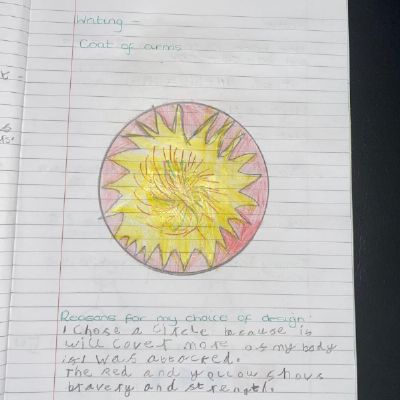 Writing -
Coat of arms
Reasons for my choice of design:
I chose a circle because is
will cover more of my body
if I was attacked.
The Red and yollow shows
bravery and strength.